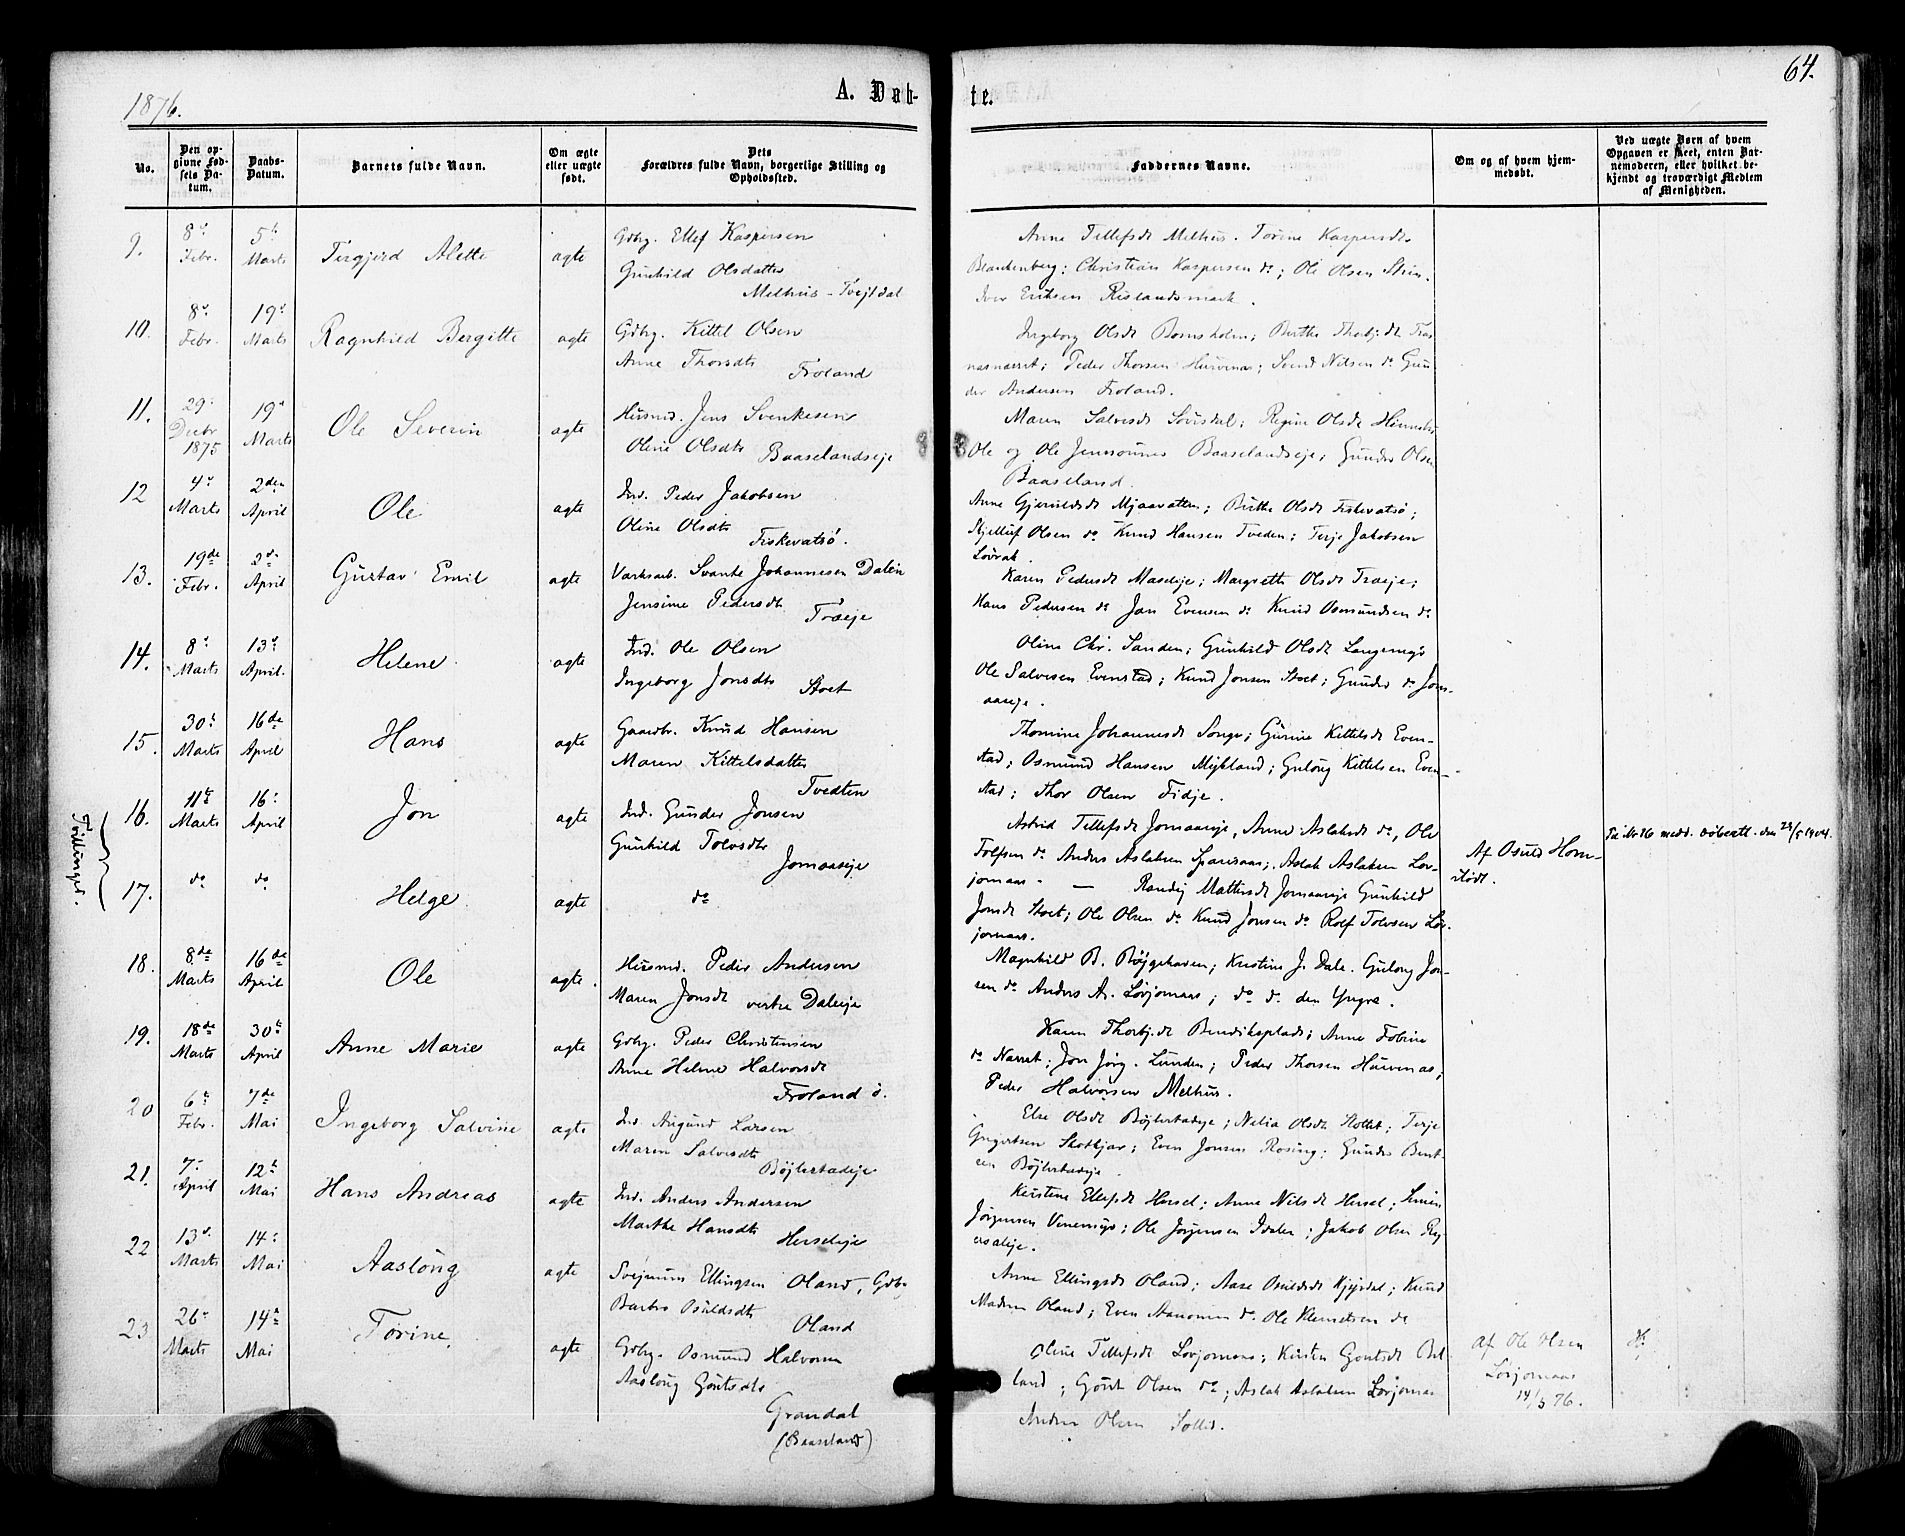 64.
1876.
A. Døb-
te.
No.
Den op-
givne Fød-
sels Da-
tum.
Daabs-
Datum.
Barnets fulde Navn.
Om ægte
eller uægte
født.
Dets
Forældres fulde Navn, borgerlige Stilling og
Opholdssted.
Faddernes Navne.
Om og af hvem hjem-
medøbt.
Ved uægte Børn af hvem
Opgaven er skeet, enten Bar-
nemoderen, eller hvilket be-
kjendt og troværdigt Medlem
af Menigheden.
9.
8
Febr.
5
Marts
Tergjerd Alette
ægte
Gdbg. Ellef Kaspersen
Gunhild Olsdatter
Melhus - Tvejtdal
Anne Tellefsdt Melhus. Torine Kaspersdt
Blankenberg; Christian Kaspersen do; Ole Olsen
Iver Eriksen Rislandsmark.
10.
8
Febr.
19
Marts
Ragnhild Bergitte
ægte
Gdbg. Kittel Olsen
Anne Thorsdt
Froland
Ingeborg Olsdt Bornsholm; Berthe Thorbj.dt
Peder Thorsen Hurvenes; Svend Nilsen do Gun
der Andersen Froland.
11.
29
Decbr
1875
19
Marts
Ole Severin
ægte
Husmd. Jens Svenkesen
Oline Olsdt
Baaselandseje
Maren Salvesdt; Regine Olsdt
Ole og Ole Jenssønner Baaselandseje; Gunder Olsen
Baaseland.
12
4
Marts
2den
April
Ole
ægte
Ind. Peder Jakobsen
Oline Olsdt
Fiskevatsø.
Anne Gjeruldsdt Mjaavatten; Birthe Olsdt Fiskevatsø;
Kjelluf Olsen do Knud Hansen Tveden; Terje Jakobsen
Løvrak.
13.
19de
Febr.
2
April
Gustav Emil
ægte
Værksarb. Svante Johannesen Dalén
Jensine Pedersdt.
Træje
Karen Pedersdt Maseleje; Margrethe Olsdt Træje;
Hans Pedersen do Jan Evensen do Knud Osmundsen do
14.
8
Marts
13
April.
Helene
ægte
Ind. Ole Olsen
Ingeborg Jonsdt
Stoet
Oline Chr. Sanden; Gunhild Olsdt Langemyr
Ole Salvesen Evenstad; Knud Jonsen Stoet; Gunder do Jom-
aaseje.
15.
30
Marts
16de
April
Hans
ægte
Gaardbr. Knud Hansen
Maren Kittelsdatter
Tvedten
Thomine Johannesdt Songe; Gunine Kittelsdt Even-
stad; Osmund Hansen Mykland; Gulong Kittelsen Even-
stad; Thor Olsen Fidje.
Tvillinger.
16.
11te
Marts
16
April
Jon
ægte
Ind. Gunder Jonsen
Gunhild Tolvsdtr
Jomaaseje
Astrid Tellefsdt Jomaaseje, Anne Aslaksdt do, Ole
Tolfsen do Anders Aslaksen Sparsaas; Aslak Aslaksen Lov-
jomaas.
Af Osuld Hom-
stødt.
Til No 16 medd. døbeatt. den 28/5 1904.
17.
do
do
Helge
ægte
do
Randig Mattisdt Jomaaseje Gunhild
Jonsdt Stoet; Ole Olsen do Knud Jonsen do Rolf Tolvsen Lov-
jomaas.
18.
8de
Marts
16de
April
Ole
ægte.
Husmd. Peder Andersen
Maren Jonsdt vestre Daleeje
Magnhild B. Bøjgehaven; Kristine J. Dale. Gulong Jon-
sen do Anders A. Lovjomaas; do do den Yngre.
19.
18de
Marts
30te
April
Anne Marie
ægte
Gdbg. Peder Christensen
Anne Helene Halvorsdt
Froland ø.
Karen Thorbj.dt Bendiksplads; Anne Tobine
do Narret; Jon Jörg. Lunden; Peder Thorsen Hurvenes;
Peder Halvorsen Melhus.
20
6te
Febr.
7de
Mai
Ingeborg Salvine
ægte
Ind. Augund Larsen
Maren Salvesdt
Bøjlestadeje
Else Olsdt Bøjlestadeje; Nilia Olsdt; Terje
Even Jonsen Rosing; Gunder Bent-
sen Bøjlestadeje.
21.
7
April
12te
Mai
Hans Andreas
ægte
Ind. Anders Andersen
Marthe Hansdt
Herseleje
Kirstine Ellefsdt Hersel; Anne Nilsdt Hersel; Simon
Jörgensen Venemyr; Ole Jörgensen Idalen; Jakob Olsen Ry-
22
13
Marts
14
Mai
Aaslöng
ægte
Svejnung Ellingsen Oland, Gdbr
Barbro Osuldsdt
Oland
Anne Ellingsdt Oland; Aase Osuldsdt; Knud
Madsen Oland; Even Aanonsen do. Ole Klemetsen do
23
26
Marts
14
Mai
Torine
ægte
Gdbg. Osmund Halvorsen
Aaslöug Gontsdt
Grøndal
(Baaseland)
Oline Tellefsdt Lovjomaas; Kirsten Gontsdt
land; Gont Olsen do; Aslak Aslaksen Lovjomaas
Anders Olsen
Af Ole Olsen
Lovjomaas
14/5 76.